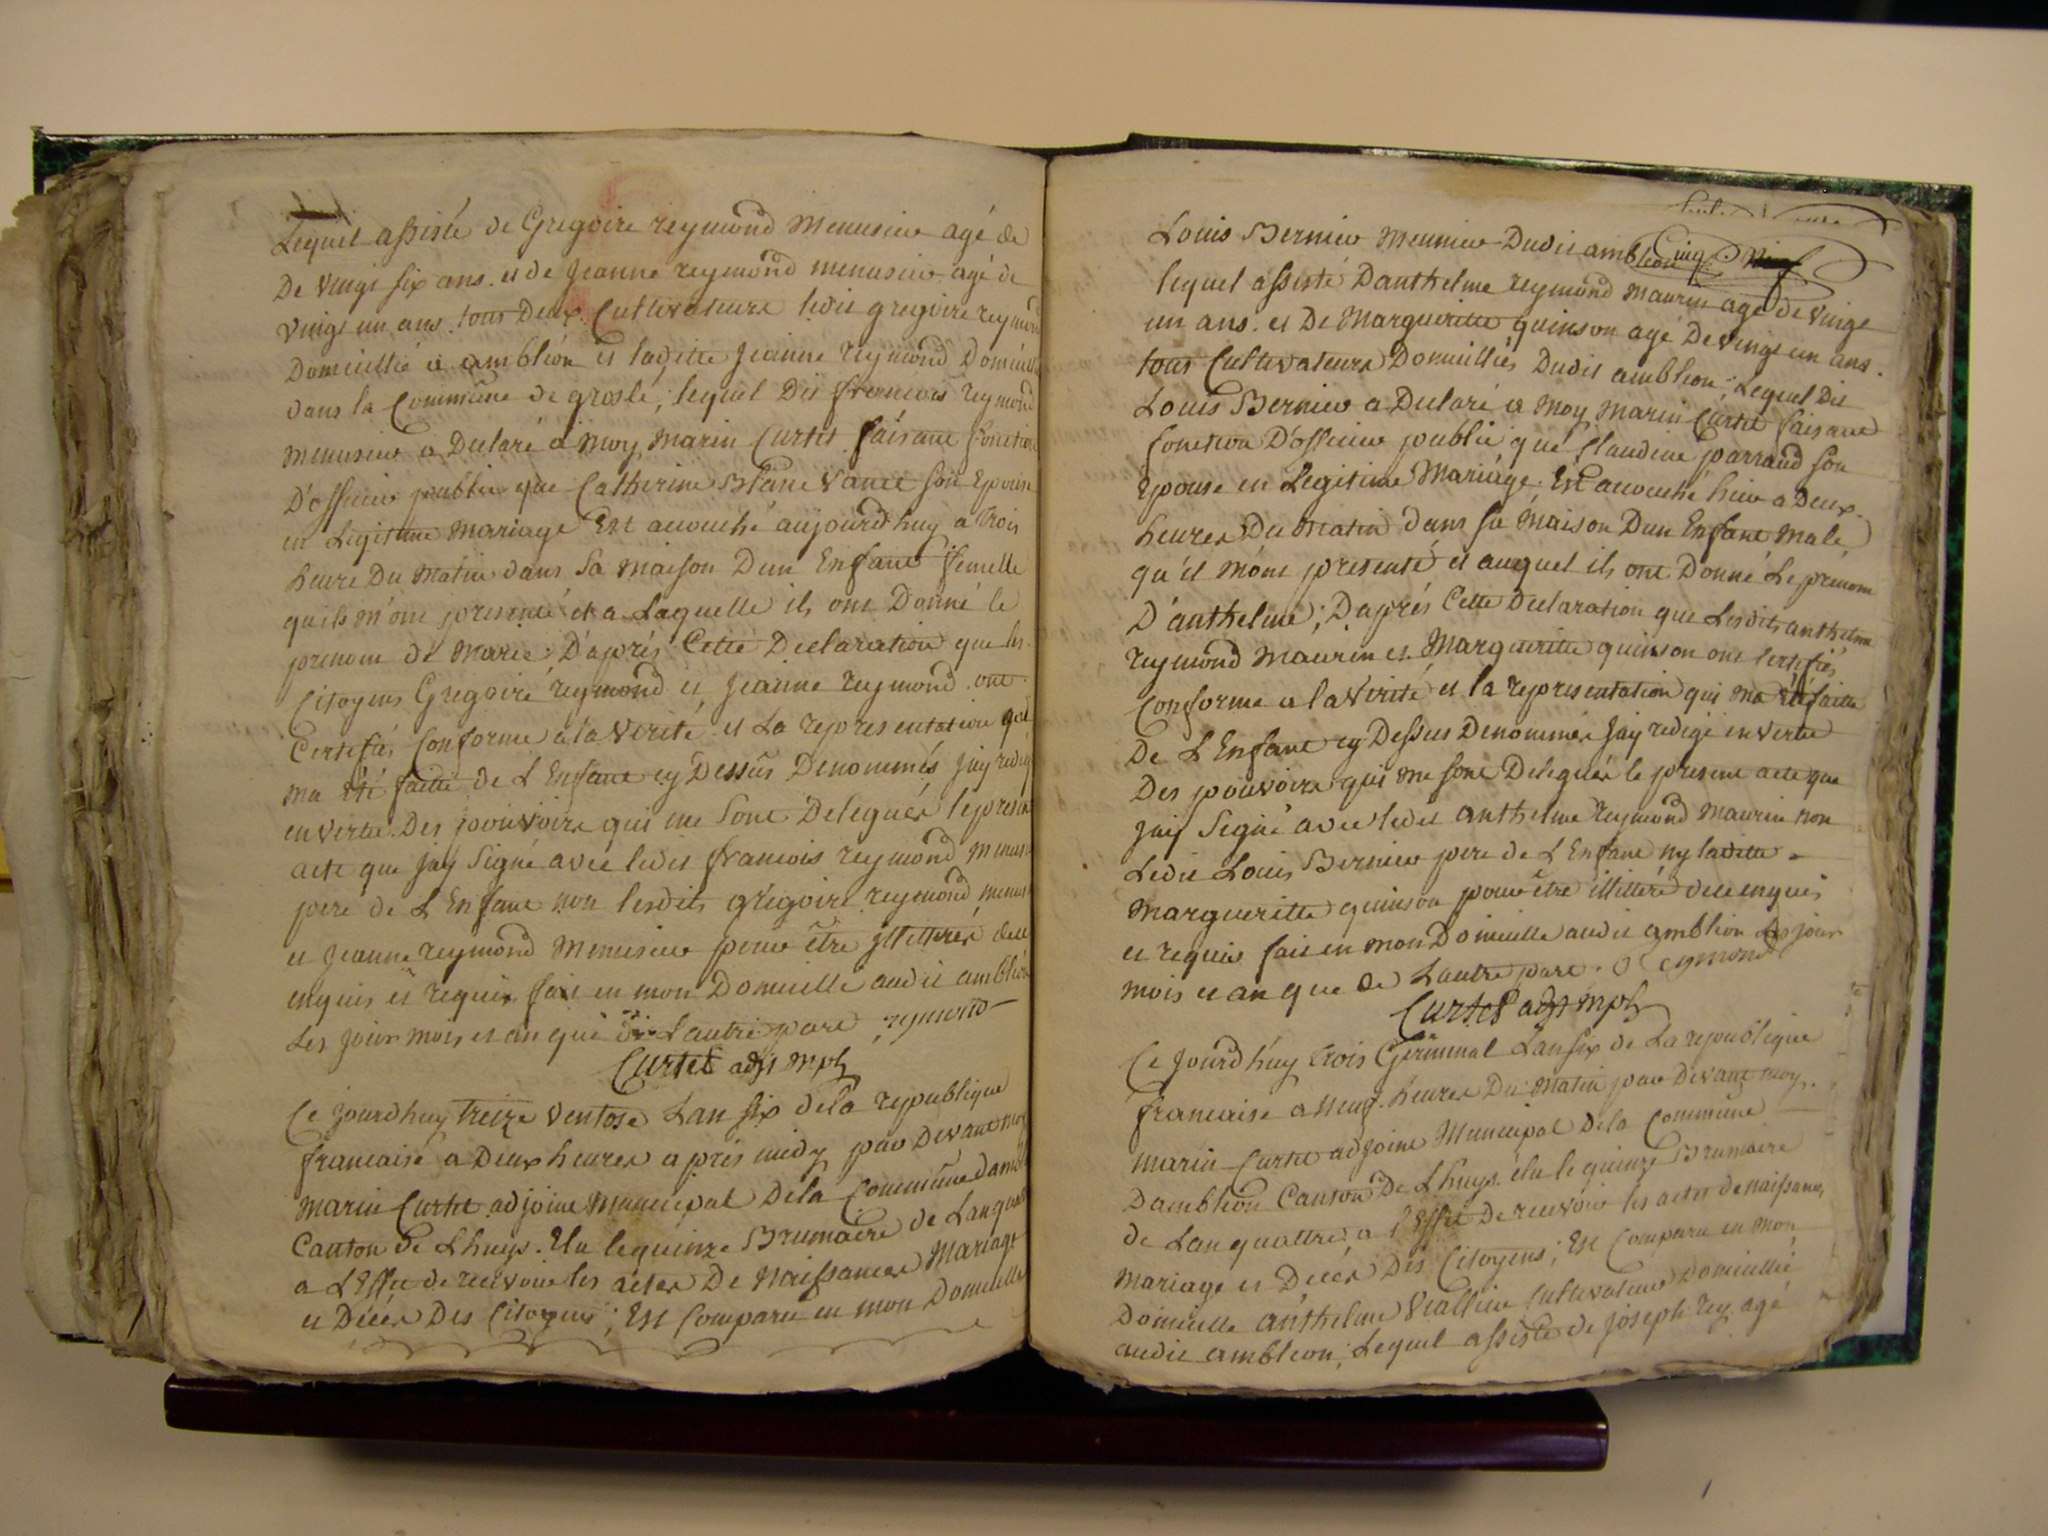 Lequel assisté de Gregoire reymond Menusier agé de
De vingt six ans. et de Jeanne reymond menusier agé de
vingt un ans. tous Deux Cultivateurs ledit gregoire reymond
Domicillié a amblion et ladite Jeanne reymond Domicilie
dans la Commune de groslé; lequel Dit francois reymond
menusier a Declaré a moy Marin Curtet faisant fonction
D'officier public que Catherine Blanc Vance son Epouse
en Legitime Mariage Est acouché aujourd huy a Trois
heure Du Matin dans Sa Maison Dun Enfant femelle
quils m'ont presenté et a Laquelle ils ont Donné le
prenom de Marie; D'aprés Cette Declaration que les
Citoyens Gregoire reymond et Jeanne reymond ont
Certifiés Conforme a la Verité et La representation qui
ma été faitte de L Enfant cy Dessus Denommés Jay redigé
en vertu Des pouvoirs qui me Sont Delegués le present
acte que Jay Signé avec ledit francois reymond Menus
pere de L Enfant non lesdits grégoire reymond menus
et Jeanne reymond Menusier pour être illitterés de ce
enquis et requis fait en mon Domicille audit amblion
Les Jour mois et an que de Lautre part reymond
Curtet adjt mpl
Ce Jourdhuy Treize Ventose Lan Six dela republique
francaise a Deux heures a prés midy par Devant moy
Marin Curtet adjoint Municipal Dela Commune damb
Canton de Lhuys. Elu le quinze Brumaire de Lanquatre
a L Effet de recevoir les actes De Naissances Mariage
et Décés Des Citoyens; Est Comparu en mon Domicille
Louis Bernier Meunier Dudit amblion Cinq Neuf
lequel assisté Danthelme reymond Maurin agé de vingt
un ans. et De Margueritte quinson agé De vingt un ans.
tous Cultivateurs Domicilliés Dudit amblion; Lequel Dit
Louis Bernier a Declaré a Moy Marin Curtet faisant
fonction D'officier public que Claudine parraud son
Epouse en Legitime Mariage Est acouché hier a Deux
heures Du Matin dans sa Maison Dun Enfant Male
qu'il m'ont presenté et auquel ils ont Donné Le prenom
D'anthelme; D'aprés Cette Declaration que Lesdits anthelme
reymond Maurin et Margueritte quinson ont Certifiés
Conforme a la Verité et la representation qui ma été faitte
De L Enfant cy Dessus Denommés Jay redigé en vertu
Des pouvoirs qui me sont Delegués le present acte que
Jay Signé avec ledit anthelme Reymond Maurin non
Ledit Louis Bernier pere de L Enfant ny ladite
Margueritte quinson pour être illitteré de ce enquis
et requis fait en mon Domicille audit amblion Les jour
mois et an que de Lautre part. Reymond
Curtet adjt mpl
Ce Jourd'huy Trois Germinal Lan Six de La republique
francaise a Neuf heures Du Matin par Devant moy
Marin Curtet adjoint Municipal Dela Commune
Damblion Canton De Lhuys. élu le quinze Brumaire
de Lan quattre a l'Effet De recevoir les actes de naissances,
Mariage et Décés Des Citoyens; Est Comparu en Mon
Domicille anthelme Viallier Cultivateur Domicillié
audit amblion; Lequel assisté de Joseph Rey. agé